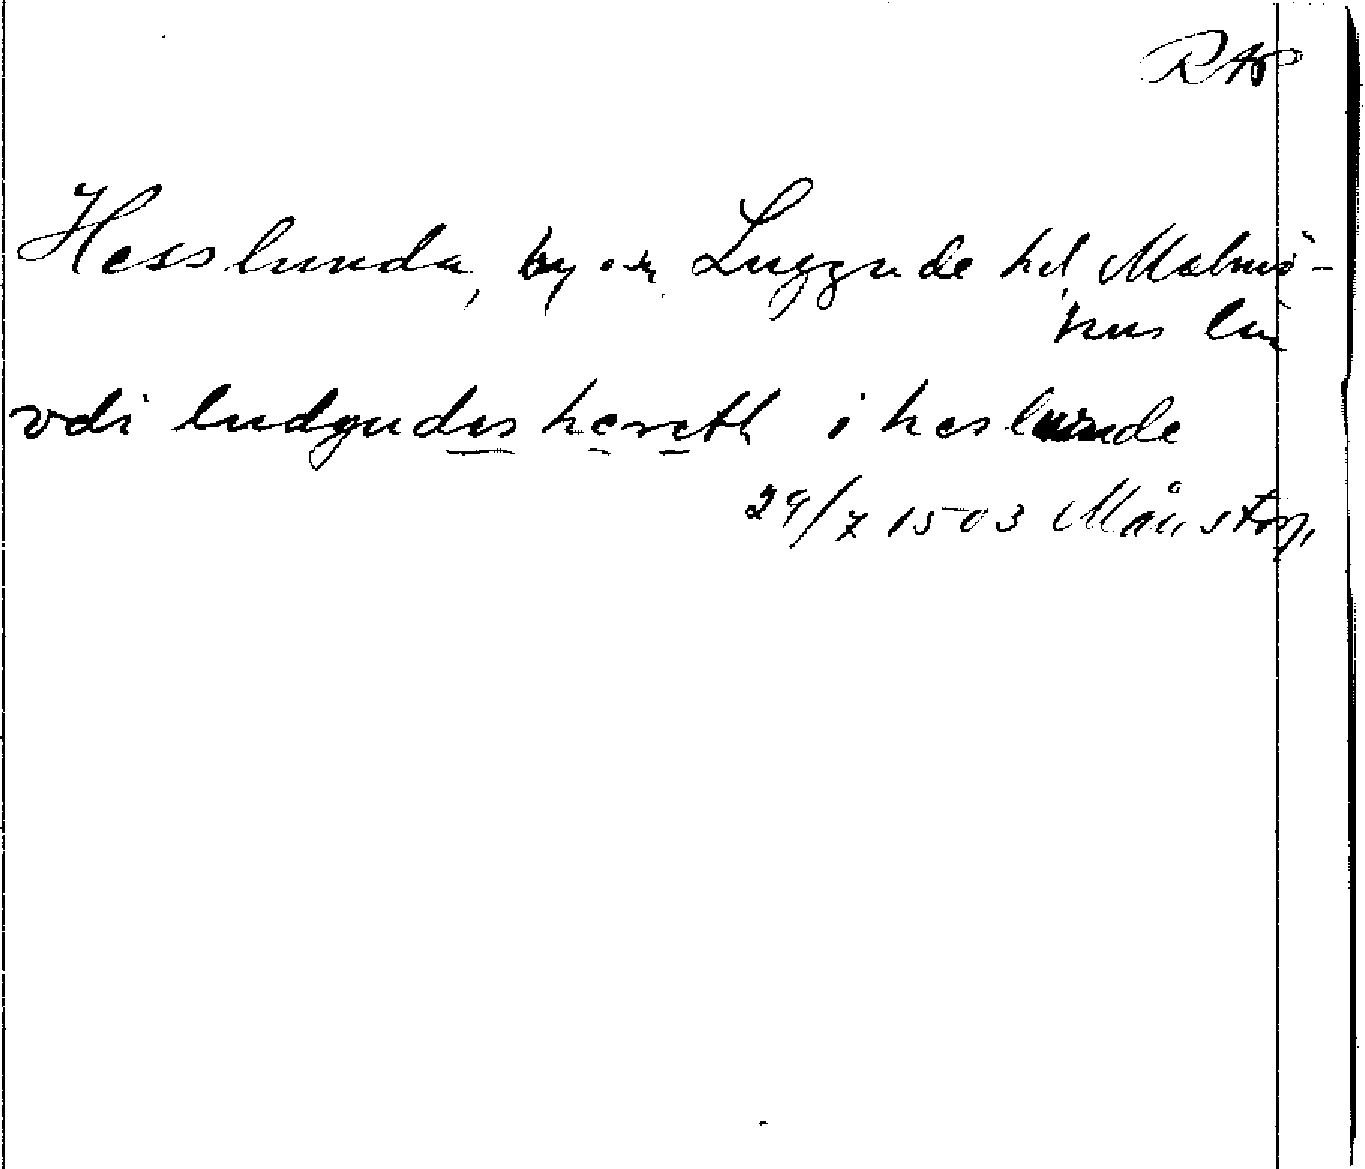 RAP
Hesslunda, by o sn, Luggude hd, Malmö-
hus län
vdi ludgudes hereth i heslunde
29/7 1503 Månstorp